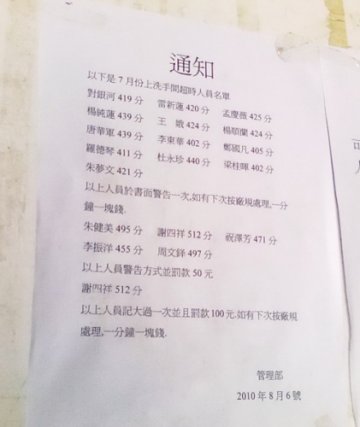 通知
以下是 7 月份上洗手間超時人員名單
對銀河 419 分 雷新蓮 420 分 孟慶薇 425 分
楊純蓮 439 分 王 娥 424 分 楊順蘭 424 分
唐華軍 439 分 李東華 402 分 鄭國凡 405 分
羅德琴 411 分 杜永珍 440 分 梁桂暉 402 分
朱夢文 421 分
以上人員於書面警告一次,如有下次按廠規處理,一分
鐘一塊錢.
朱健美 495 分 謝四祥 512 分 祝澤芳 471 分
李振洋 455 分 周文鋒 497 分
以上人員警告方式並罰款 50 元
謝四祥 512 分
以上人員記大過一次並且罰款 100 元.如有下次按廠規
處理,一分鐘一塊錢.
管理部
2010 年 8 月 6 號